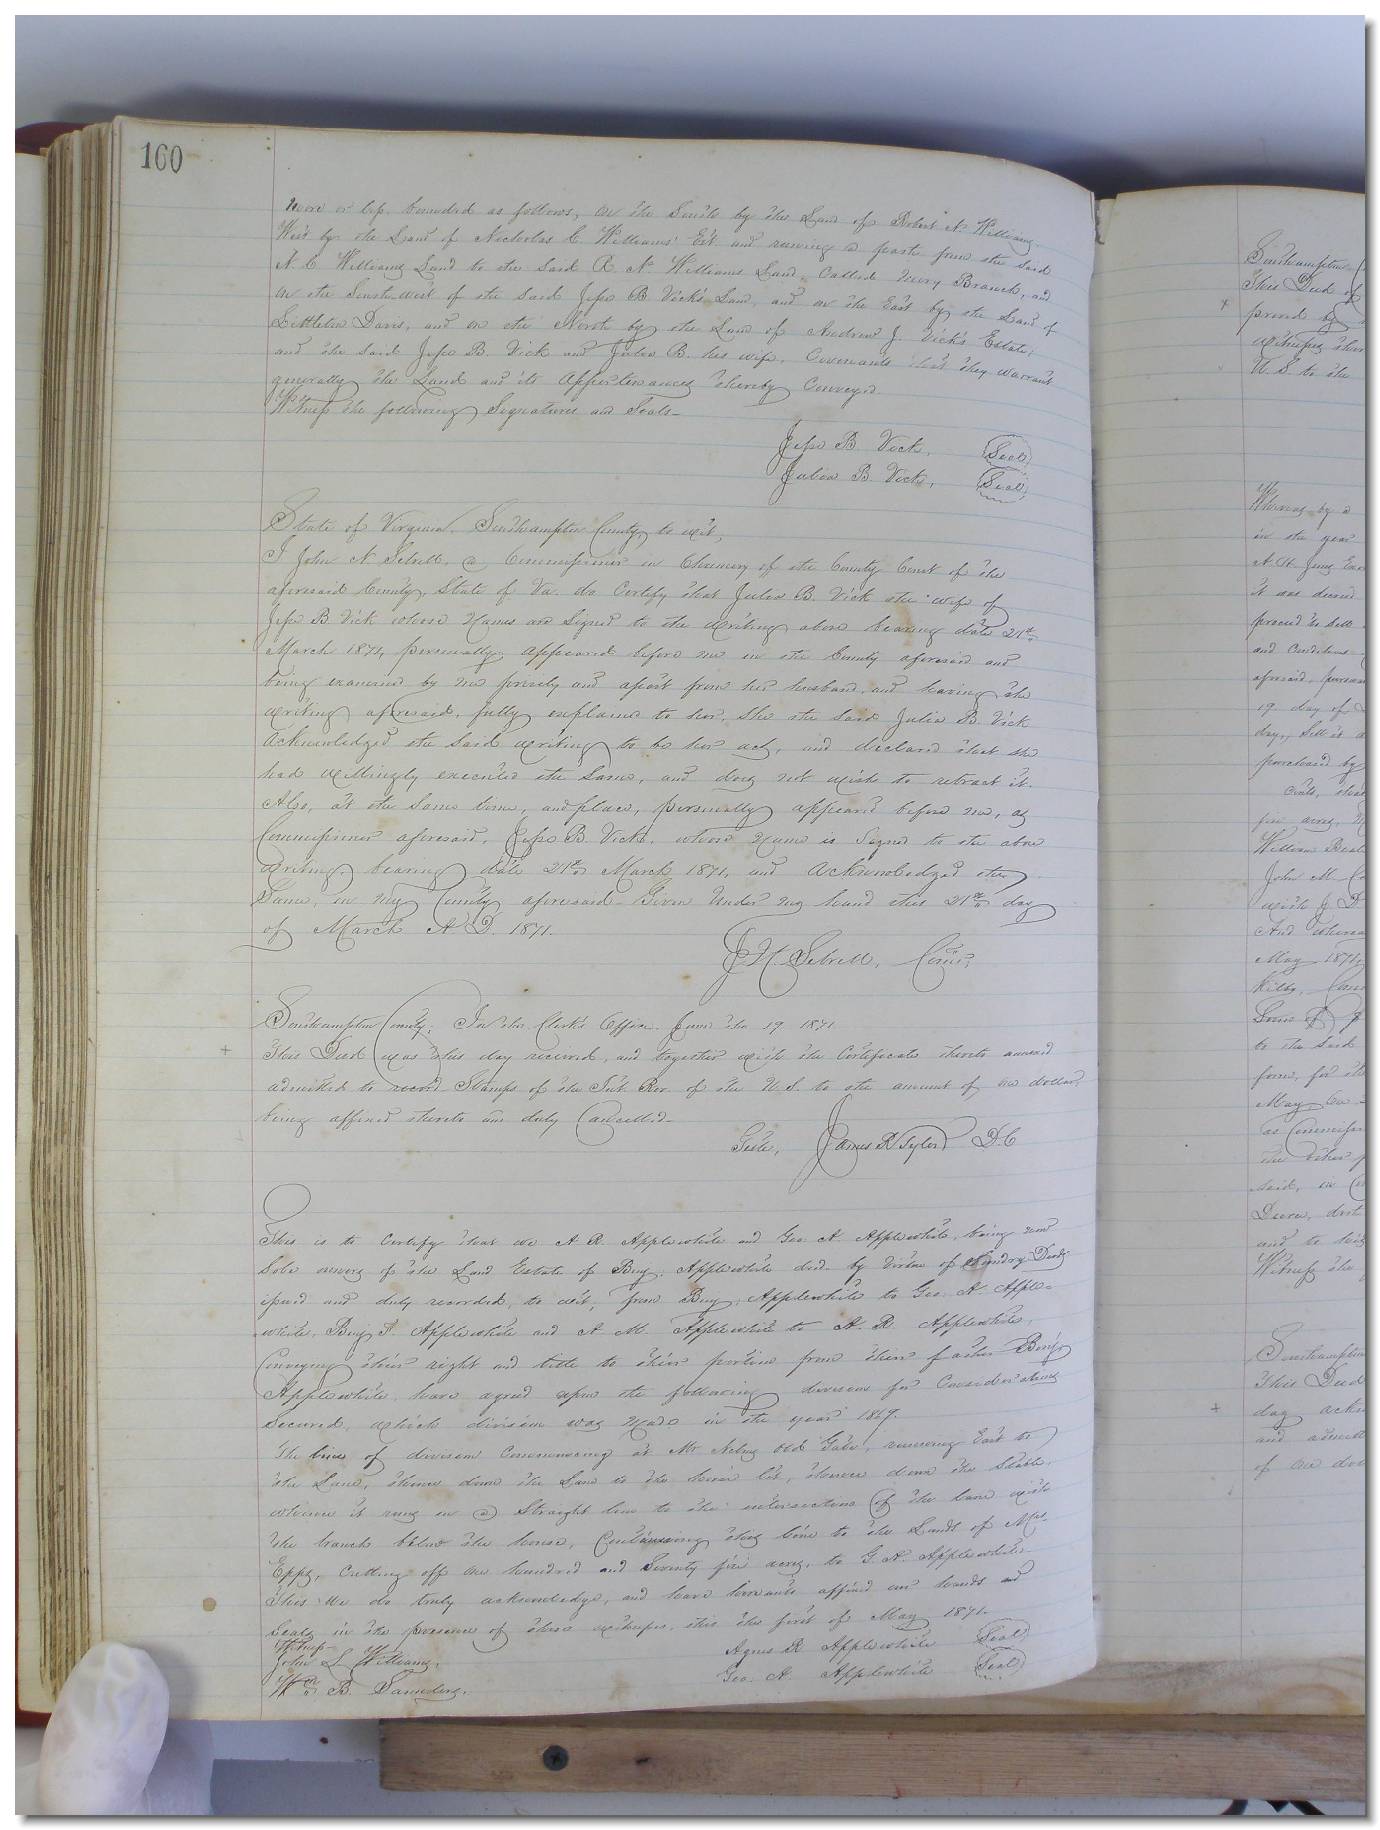 160
more or less, bounded as follows, on the South by the Land of Robert N. Williams
West by the Land of Nicholas C Williams' Est and running a path from the said
N. C Williams Land to the said R. N Williams Land Called Miery Branch, and
on the Southwest of the said Jesse B Vick's Land, and on the East by the Land of
Littleton Davis, and on the North by the Land of Andrew J. Vick's Estate;
and the said Jesse B. Vick and Julia B. his wife, Covenants that they warrant
generally the Land and its Appertenances thereby Conveyed.
Witness the following Signatures and Seals-
Jesse B Vick, Seal
Julia B Vick, Seal
State of Virginia. Southampton County, to wit,
I John N Sebrell, a Commissioner in Chancery of the County Court of the
aforesaid County, State of Va. do Certify that Julia B. Vick the wife of
Jesse B Vick whose Names are Signed to the writing above bearing date 21st
March 1871, personally appeared before me in the County aforesaid and
being examined by me privily and apart from her husband, and having the
writing aforesaid, fully explained to her, She the Said Julia B. Vick
Acknowledged the Said writing to be her act, and declared that she
had willingly executed the Same, and does not wish to retract it.
Also, at the Same time, and place, personally appeared before me, as
Commissioner aforesaid, Jesse B. Vick, whose Name is Signed to the above
writing, bearing date 21st March 1871, and Acknowledged the
Same, in my County aforesaid - Given Under my hand this 21st day
of March A D. 1871.
J N. Sebrell, Comr.
Southampton County, In the Clerk's Office June the 19 1871
This Deed was this day received, and together with the Certificate thereto annexed
admitted to record Stamps of the Int. Rev. of the U.S. to the amount of one dollar,
being affixed thereto and duly Cancelled-
Teste, James R Tyler D.C
This is to Certify that we A. R. Applewhite and Geo. A Applewhite, being now
Sole owners of the Land Estate of Benj. Applewhite decd. by Virtue of Sundry Deeds
issued and duly recorded, to wit, from Benj. Applewhite to Geo. A. Apple-
white, Benj F. Applewhite and A. M. Applewhite to A. R. Applewhite,
Conveying their right and title to their portion from their father Benj.
Applewhite have agreed upon the following division for Considerations
Secured, which division was Made in the year 1869.
The line of division Commencing at Mr Nelms Old Gate, running East to
the Lane, thence down the Lane to the horse lot, thence down the Slash,
whence it runs in a Straight line to the intersection of the lane with
the branch below the house, Continuing this line to the Lands of Mrs.
Epps, Cutting off one hundred and Seventy five acres, to G. A. Applewhite.
This We do truly acknowledge, and have hereunto affixed our hands and
Seals in the presence of these witnesses, this the first of May 1871.
Witness
John L Williams, Agnes R Applewhite Seal
Wm B. Saunders. Geo. A. Applewhite Seal
Southampton
This Deed of
proved by
witnesses there
U. S. to the
Whereas by a
in the year
it was decreed
proceed to sell
and Conditions
aforesaid, pursuan
19 day of
day, Sell at
purchased by
five acres,
William Beal
John M. Co
with J. D
And whereas
May 1871,
Kilby, Com
to the Said
form, for the
May
as Commissio
the other p
said, in
Decree, doth
and to his
Witness the
Southampton
This Deed
day ackn
and admitt
of one dol